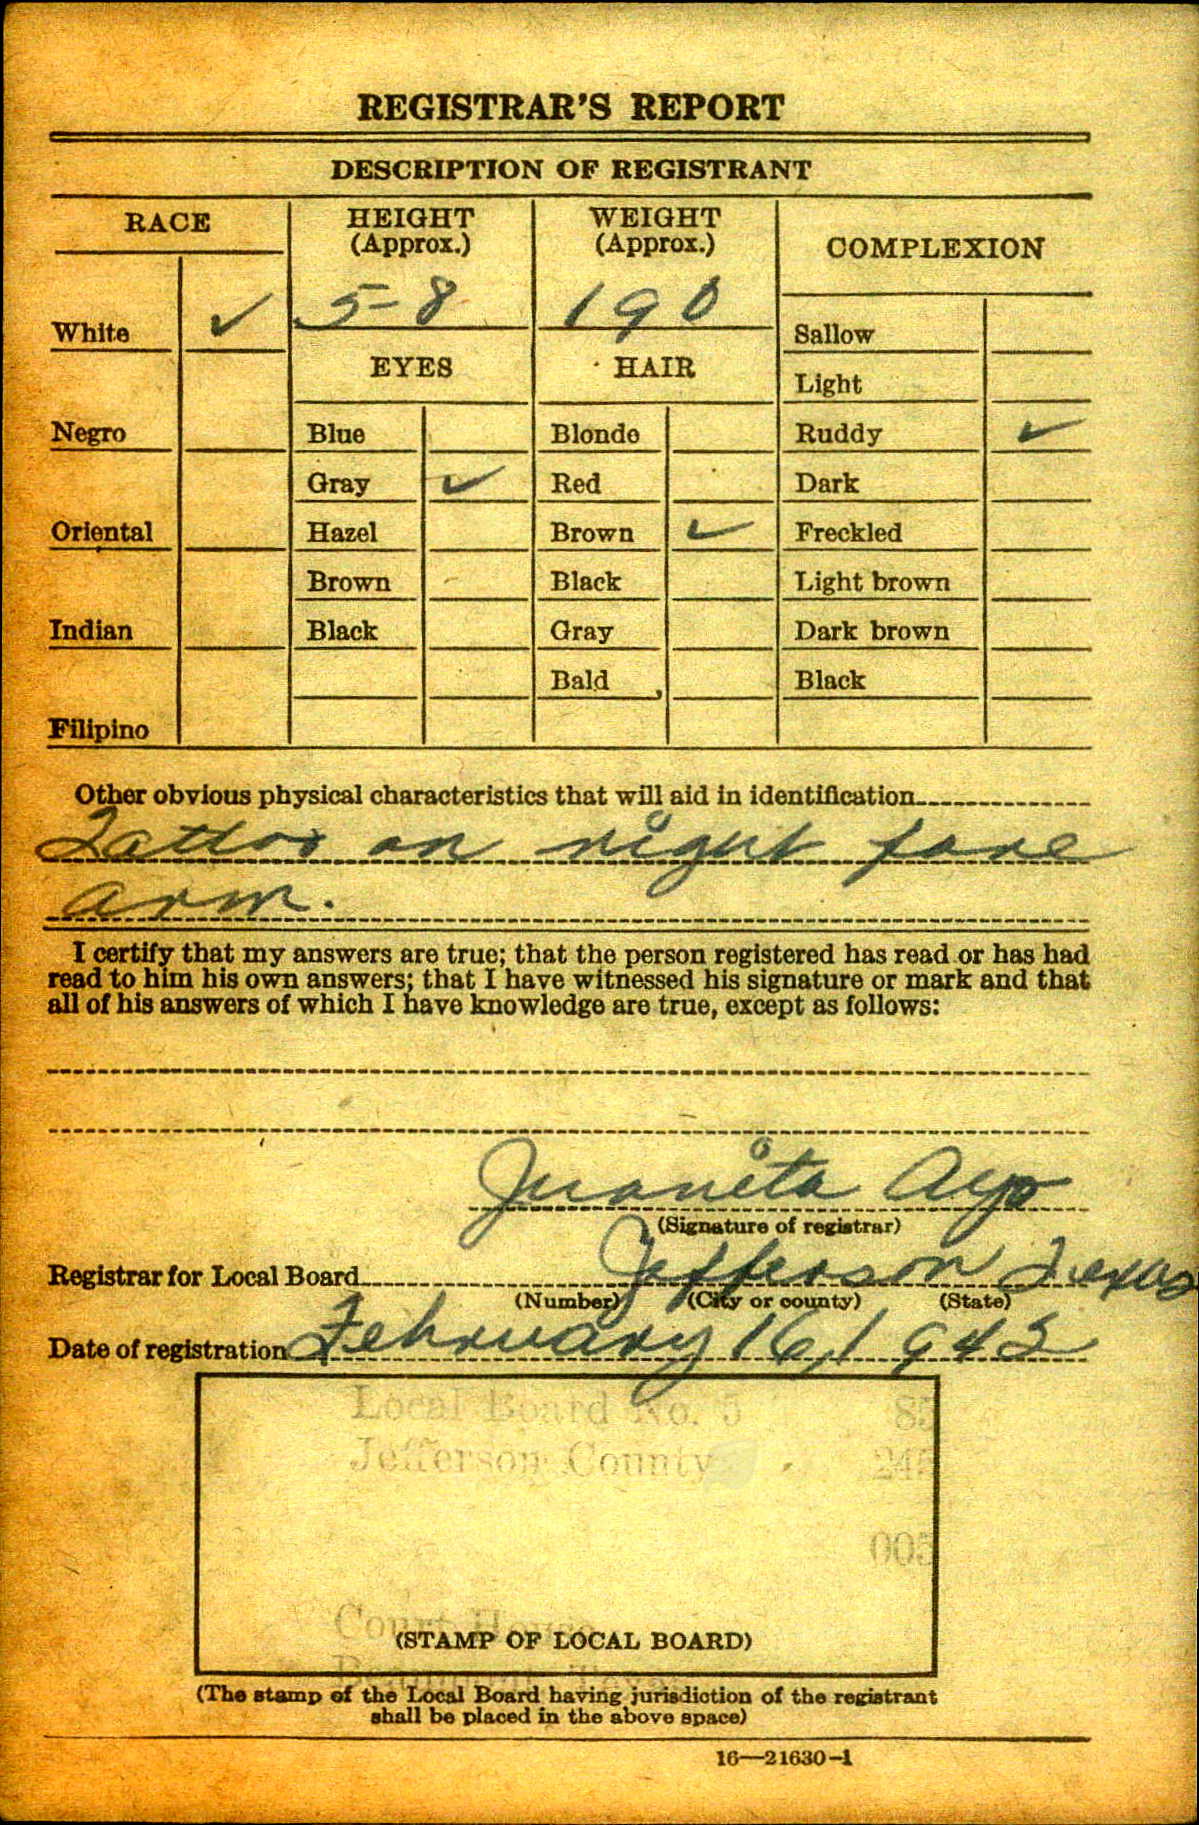 REGISTRAR'S REPORT
DESCRIPTION OF REGISTRANT
RACE
HEIGHT
(Approx.)
WEIGHT
(Approx.)
COMPLEXION
White ✓ 5-8 190 Sallow
EYES HAIR
Light
Negro Blue Blonde Ruddy ✓
Gray ✓ Red Dark
Oriental Hazel Brown ✓ Freckled
Brown Black Light brown
Indian Black Gray Dark brown
Bald Black
Filipino
Other obvious physical characteristics that will aid in identification
Tattoo on right fore
arm.
I certify that my answers are true; that the person registered has read or has had
read to him his own answers; that I have witnessed his signature or mark and that
all of his answers of which I have knowledge are true, except as follows:
Juanita Ayo
(Signature of registrar)
Registrar for Local Board Jefferson Texas
(Number) (City or county) (State)
Date of registration February 16, 1942
Local Board No. 5 85
Jefferson County 245
005
Court House
(STAMP OF LOCAL BOARD)
Beaumont, Texas
(The stamp of the Local Board having jurisdiction of the registrant
shall be placed in the above space)
16—21630-1